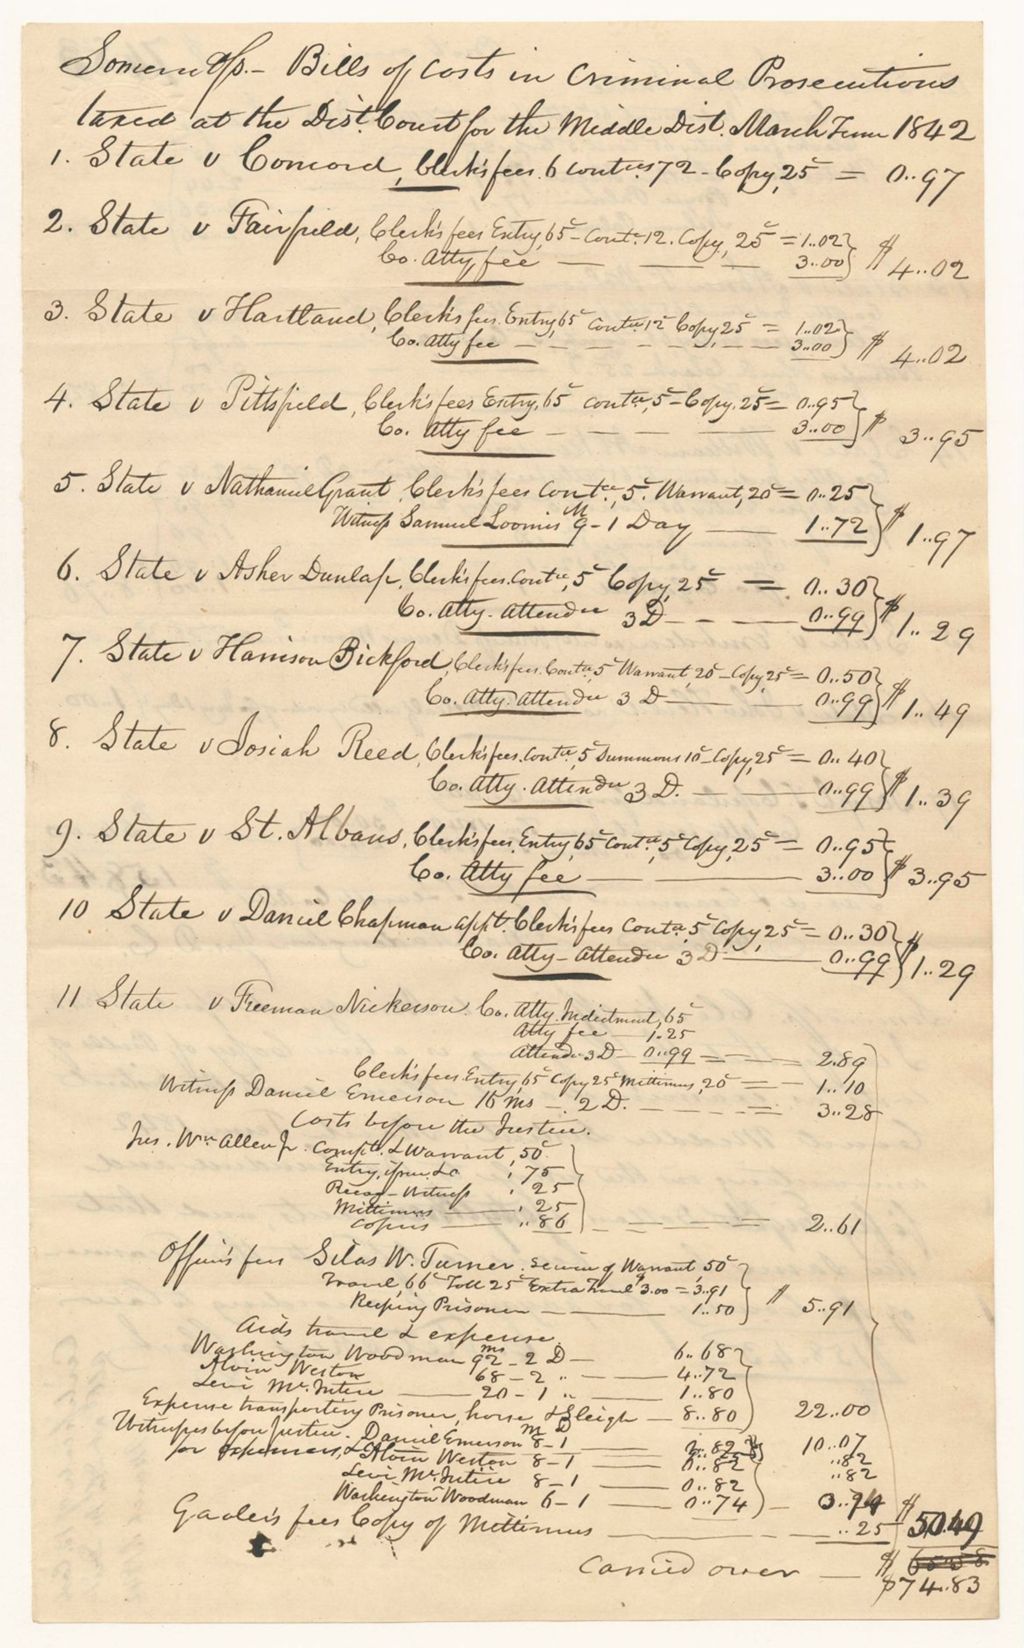 Somerset ss. – Bills of Costs in Criminal Prosecutions
taxed at the Dist. Court for the Middle Dist. March Term 1842
1. State v Concord, Clerk's fees. 6 contces 72 – Copy, 25c = 0..97
2. State v Fairfield, Clerk's fees Entry, 65c – Contce 12. Copy, 25c = 1..02
Co. Atty fee — — — 3..00 $ 4..02
3. State v Hartland, Clerk's fees. Entry, 65c Contce 12c Copy, 25c = 1..02
Co. Atty fee — — — 3..00 $ 4..02
4. State v Pittsfield, Clerk's fees Entry, 65c contce, 5c – Copy. 25c = 0..95
Co. Atty fee — — — 3..00 $ 3..95
5. State v Nathaniel Grant, Clerk's fees Contce, 5c. Warrant, 20c = 0..25
Witness Samuel Loomis 9 M – 1 Day — 1..72 $ 1..97
6. State v Asher Dunlap, Clerk's fees. Contce, 5c Copy, 25c = 0..30
Co. Atty. attendce 3 D — — 0..99 $ 1..29
7. State v Harrison Bickford, Clerk's fees. Contce, 5c Warrant, 20c – Copy, 25c = 0..50
Co. Atty. attendce 3 D — — 0..99 $ 1..49
8. State v Josiah Reed, Clerk's fees. Contce, 5c Summons 10c – Copy, 25c = 0..40
Co. Atty. attendce 3 D. — — 0..99 $ 1..39
9. State v St. Albans, Clerk's fees, Entry, 65c Contce, 5c Copy, 25c = 0..95
Co. Atty fee — — 3..00 $ 3..95
10 State v Daniel Chapman applt. Clerk's fees Contce, 5c Copy, 25c = 0..30
Co. Atty – attendce 3 D — 0..99 $ 1..29
11 State v Freeman Nickerson. Co. Atty. Indictment, 65c
Atty fee — 1.25
Attendce 3 D — 0..99 = — = 2.89
Clerk's fees. Entry, 65c Copy 25c Mittimus, 20c = — 1..10
Witness Daniel Emerson 16 ms – 2 D. — — = 3..28
Costs before the Justice.
Jus. Wm Allen Jr. Complt. & Warrant, 50c
Entry, &c , 75
Recog – Witness , 25
Mittimus — , 25
Copies — ,, 86 — — = 2..61
Officer's fees Silas W. Turner. Serving Warrant, 50c
Travel, 66c Toll 25c Extra travel $3.00 = 3.91
Keeping Prisoner — 1..50 $ 5..91
Aids travel & expense
Washington Woodman 92 ms – 2 D — 6..68
Alvin Weston 68 – 2 " — 4..72
Levi McIntire — 20 – 1 " — 1..80
Expense transporting Prisoner, horse & Sleigh — 8..80 22..00
Witnesses before Justice. Daniel Emerson 8 M – 1 D — 0..82 10..07
or expenses, & Alvin Weston 8 – 1 — 0..82 ..82
Levi McIntire 8 – 1 — 0..82 ..82
Washington Woodman 6 – 1 — 0..74 — 3..74
Gaoler's fees Copy of Mittimus — ..25 $ 50.49
Carried over — $
$74.83